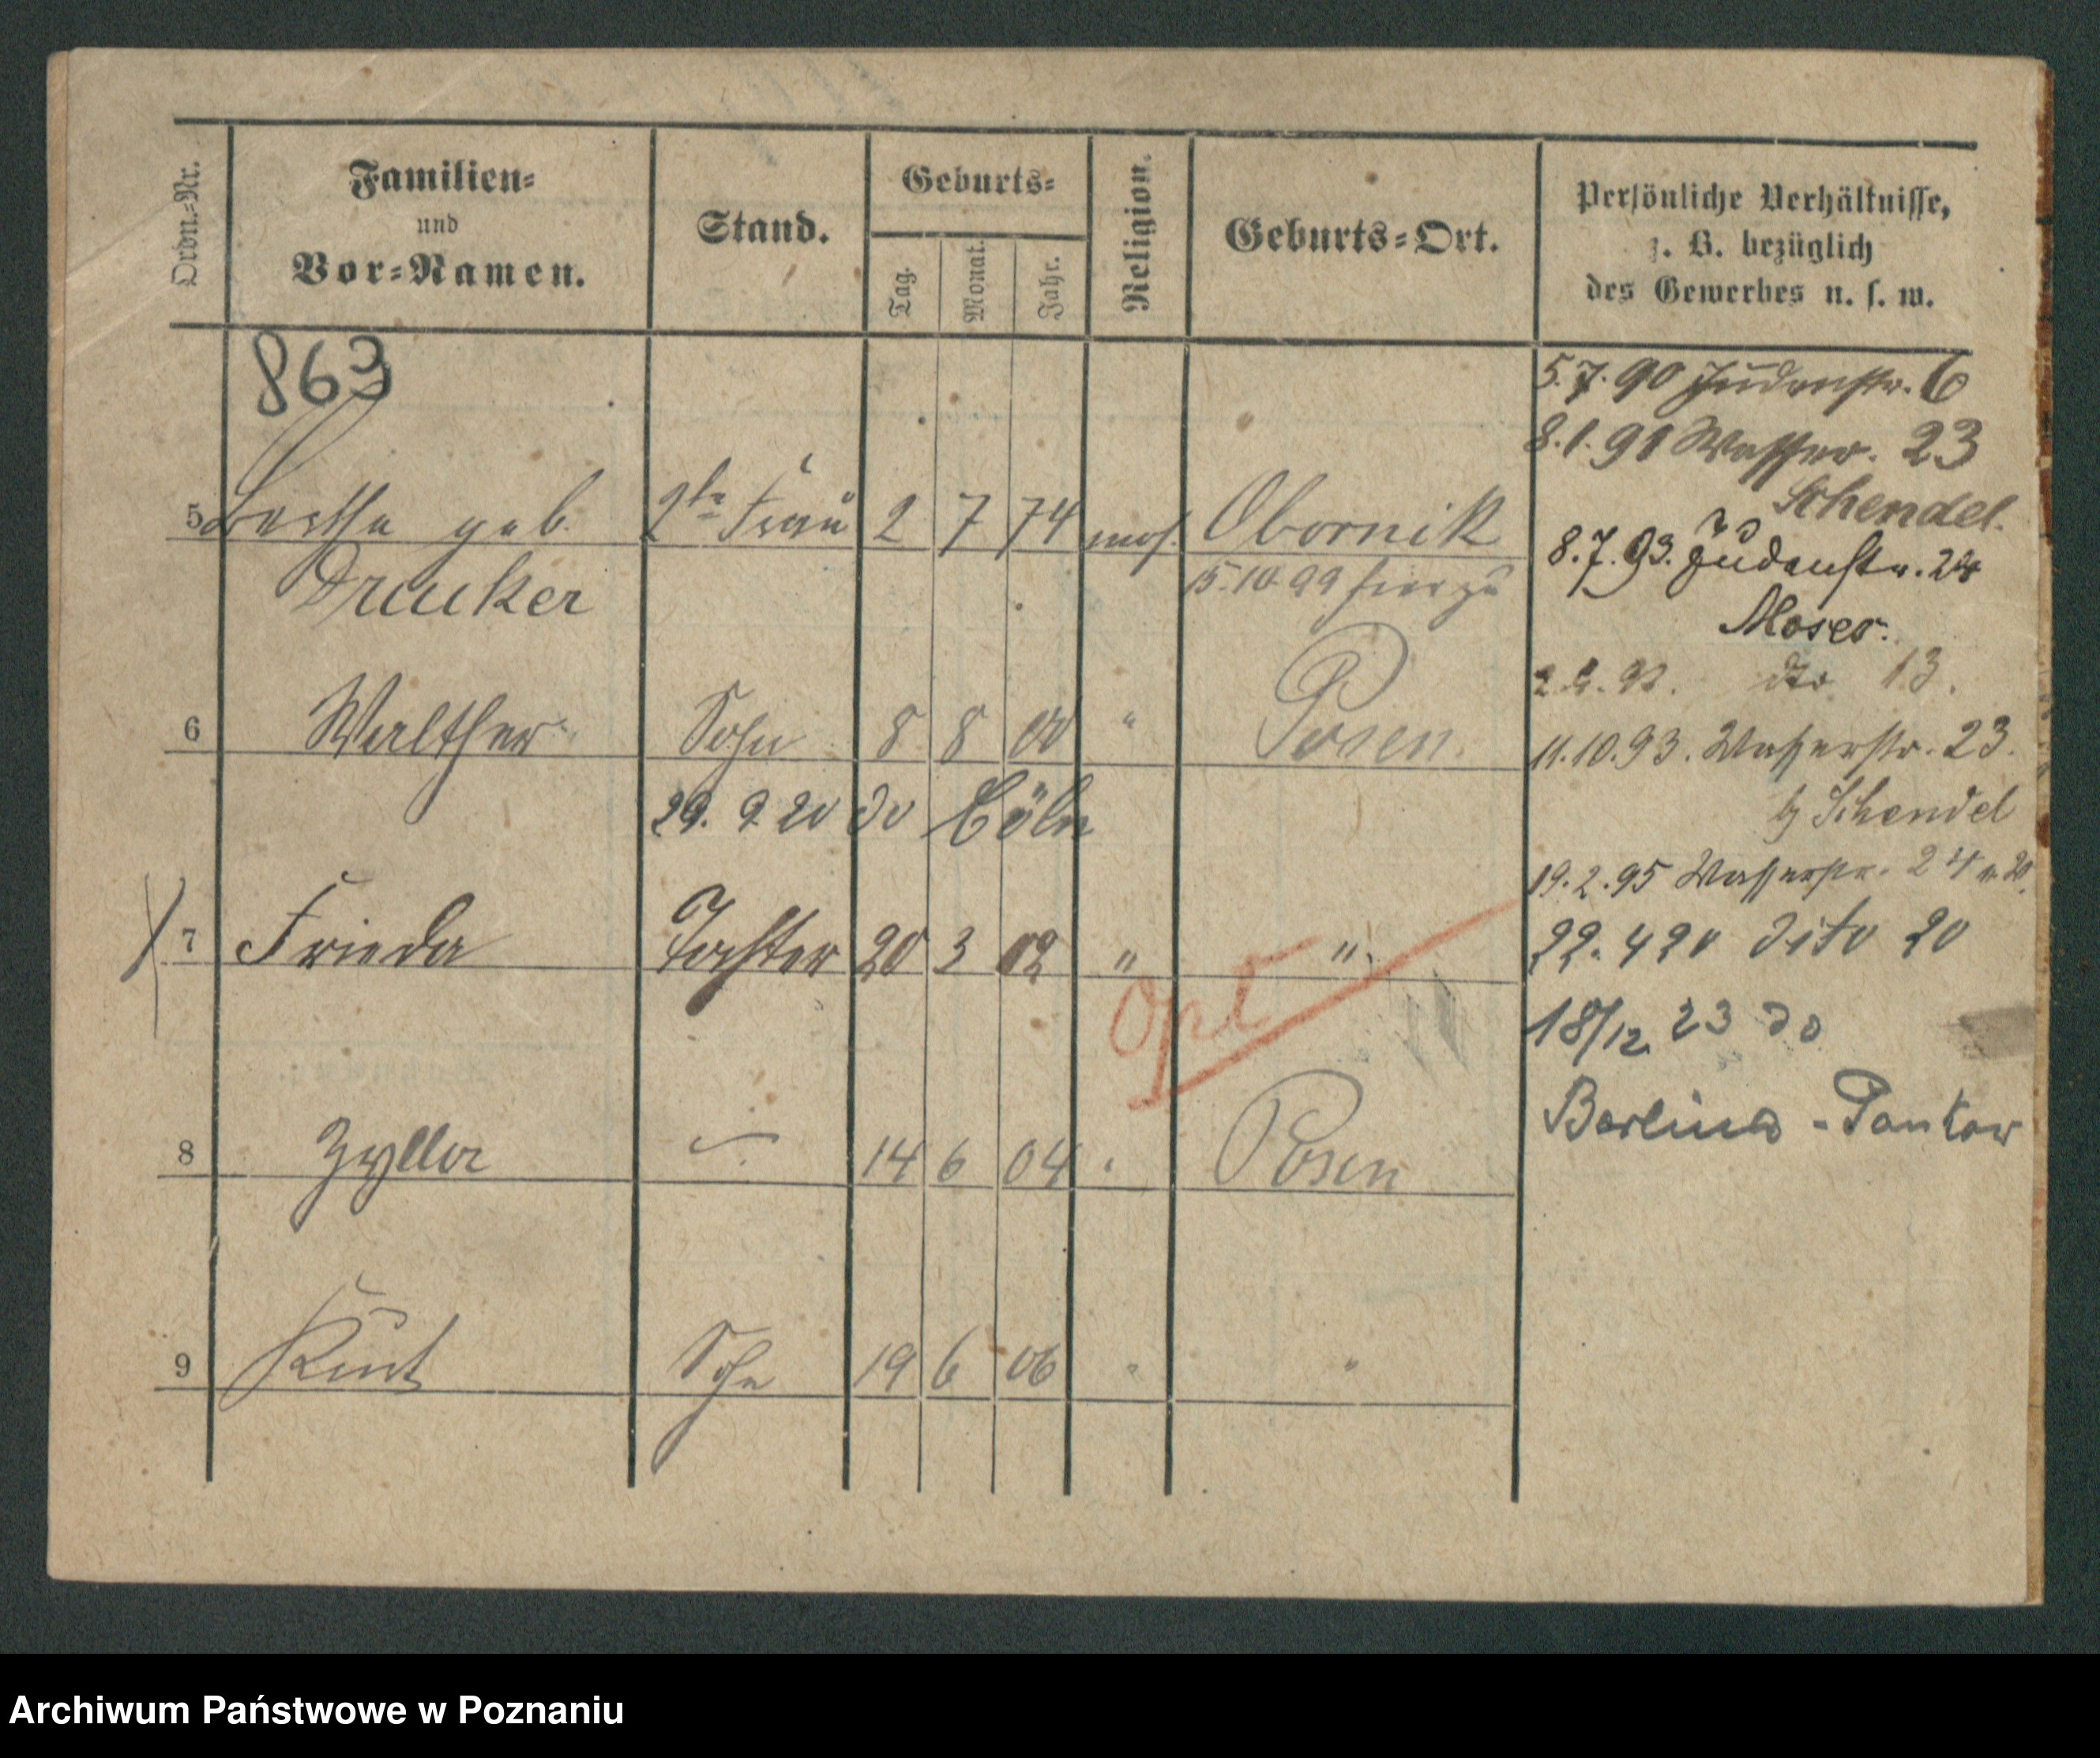 Ordn.=Nr.
Familien=
und
Vor=Namen.
Stand.
Geburts=
Tag.
Monat.
Jahr.
Religion.
Geburts=Ort.
Persönliche Verhältnisse,
z. B. bezüglich
des Gewerbes u. s. w.
863
5.7.90 Judenstr. 6
8.1.91 Wasser. 23
Schendel.
5 Bertha geb. 2te Frau 2 7 74 mos. Obornik
Drucker
15.10.99 hier zu
8.7.93. Judenstr. 24
Moser.
do 13.
6 Walther Sohn 8 8 00 " Posen
11.10.93. Wasserstr. 23.
b/ Schendel
29. 9 20 do Cöln
19.2.95 Wasserstr. 24
7 Frieda Tochter 20 3 02 " "
22. 4 20 dito 20
Opt
18/12 23 do
Berlin - Pankow
8 14 6 04 Posen
9 Kurt Sohn 19 6 06 " "
Archiwum Państwowe w Poznaniu